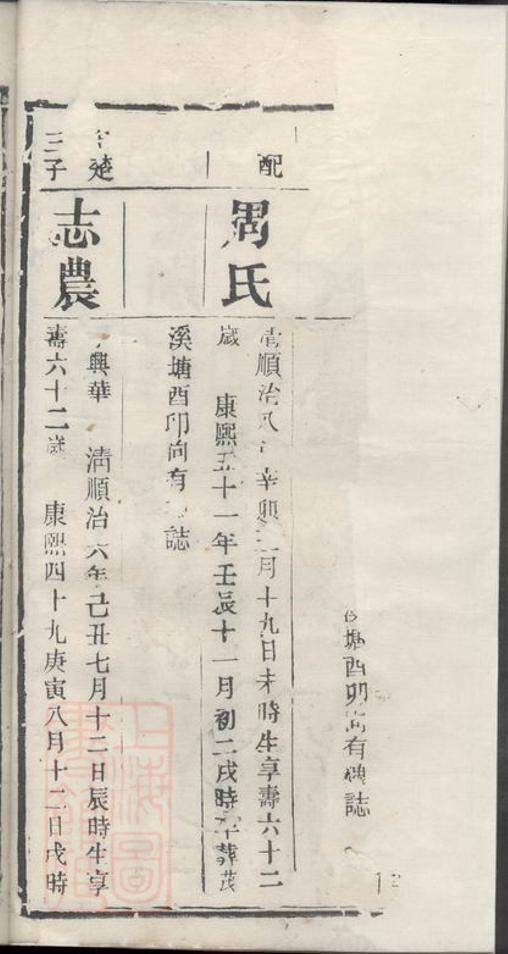 塘酉卯向有碑誌
配
周氏
清順治八年辛卯二月十九日未時生享壽六十二
歲 康熙五十一年壬辰十一月初二戌時卒葬茂
溪塘酉卯向有 誌
楚
三子
志農
興華 清順治六年己丑七月十二日辰時生享
壽六十二歲 康熙四十九庚寅八月十二日戌時
上海圖書館藏